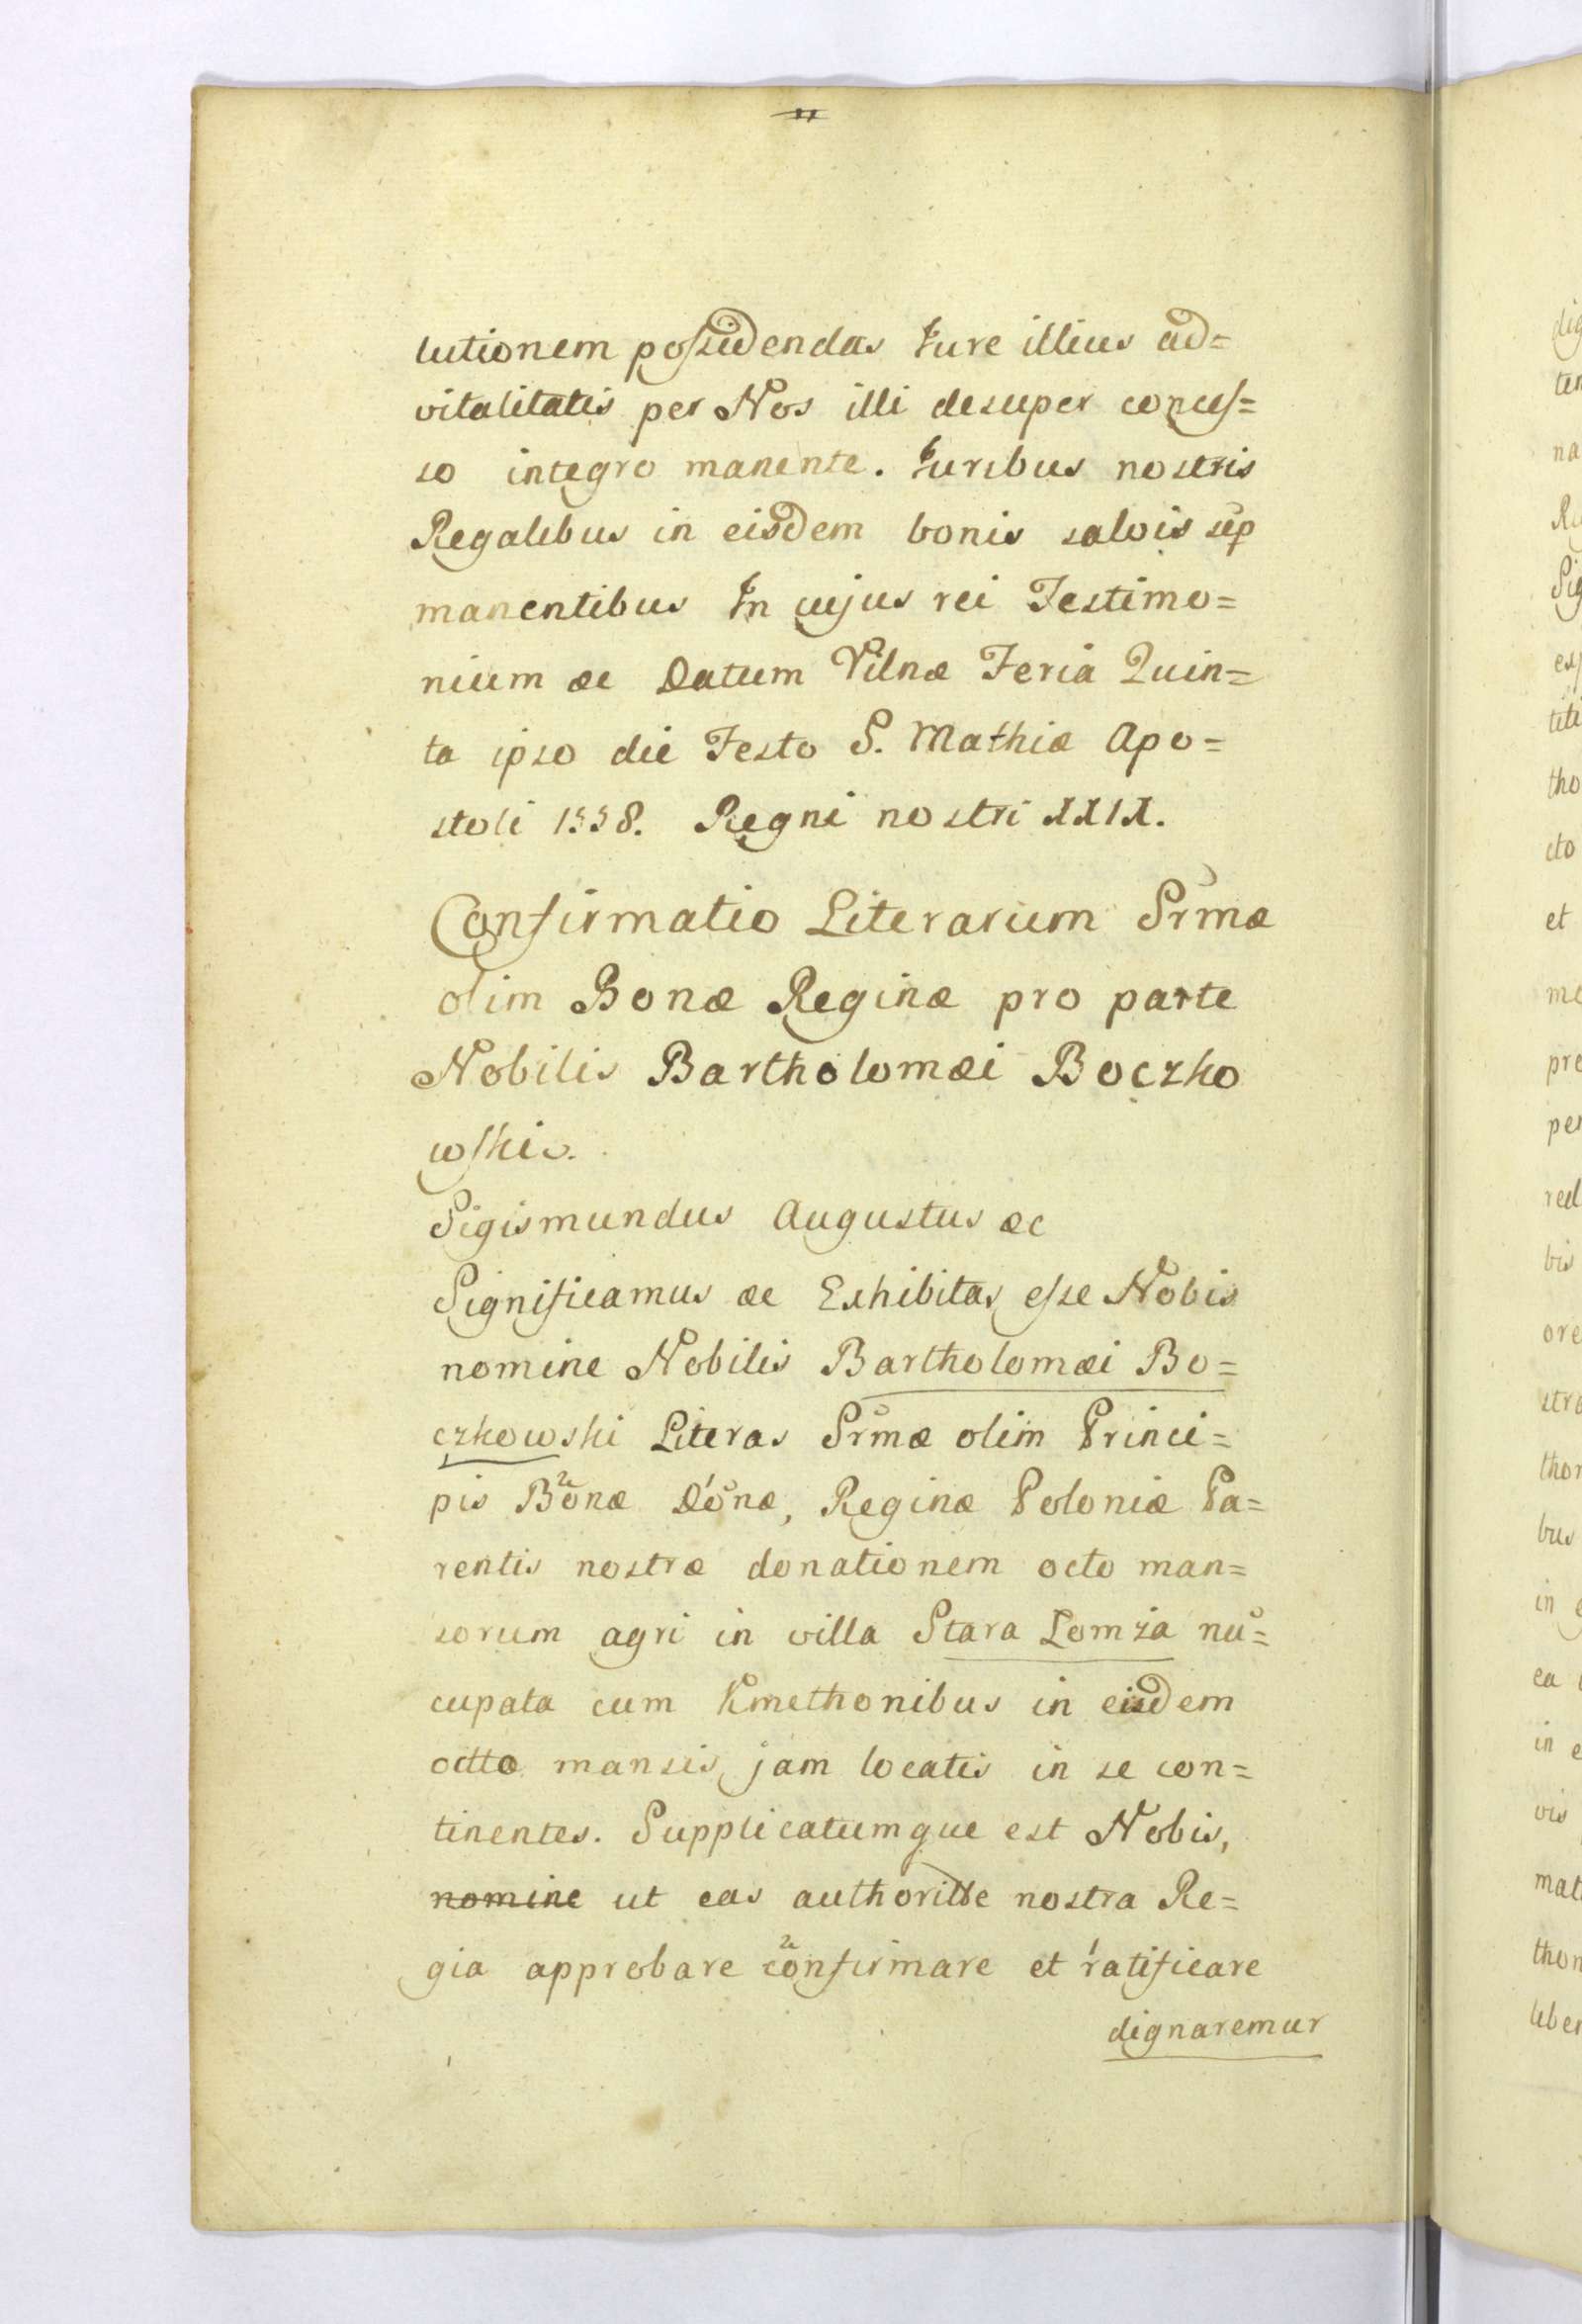 lutionem possidendas Jure illius ad=
vitalitatis per Nos illi desuper conces=
so integro manente. Juribus nostris
Regalibus in eisdem bonis salvis sẽp
manentibus In cujus rei Testimo=
nium ac Datum Vilnæ Feria Quin=
ta ipso die Festo S. Mathiæ Apo=
stoli 1558. Regni nostri XXIX.
Confirmatio Literarum Srmæ
olim Bonæ Reginæ pro parte
Nobilis Bartholomæi Boczko
wskis.
Sigismundus Augustus ac
Significamus ac Exhibitas esse Nobis
nomine Nobilis Bartholomæi Bo=
czkowski Literas Srmæ olim Princi=
pis Bonæ Donæ, Reginæ Poloniæ Pa=
rentis nostræ donationem octo man=
sorum agri in villa Stara Lomża nu=
cupata cum Kmethonibus in eisdem
octto mansis jam locatis in se con=
tinentes. Supplicatumque est Nobis,
nomine ut eas authoritte nostra Re=
gia approbare confirmare et ratificare
dignaremur
dig
ten
na
Sig
tho
cto
et
me
pre
per
red
bis
ore
stra
thon
bus
in
ea
in e
vis
mat
thon
liber